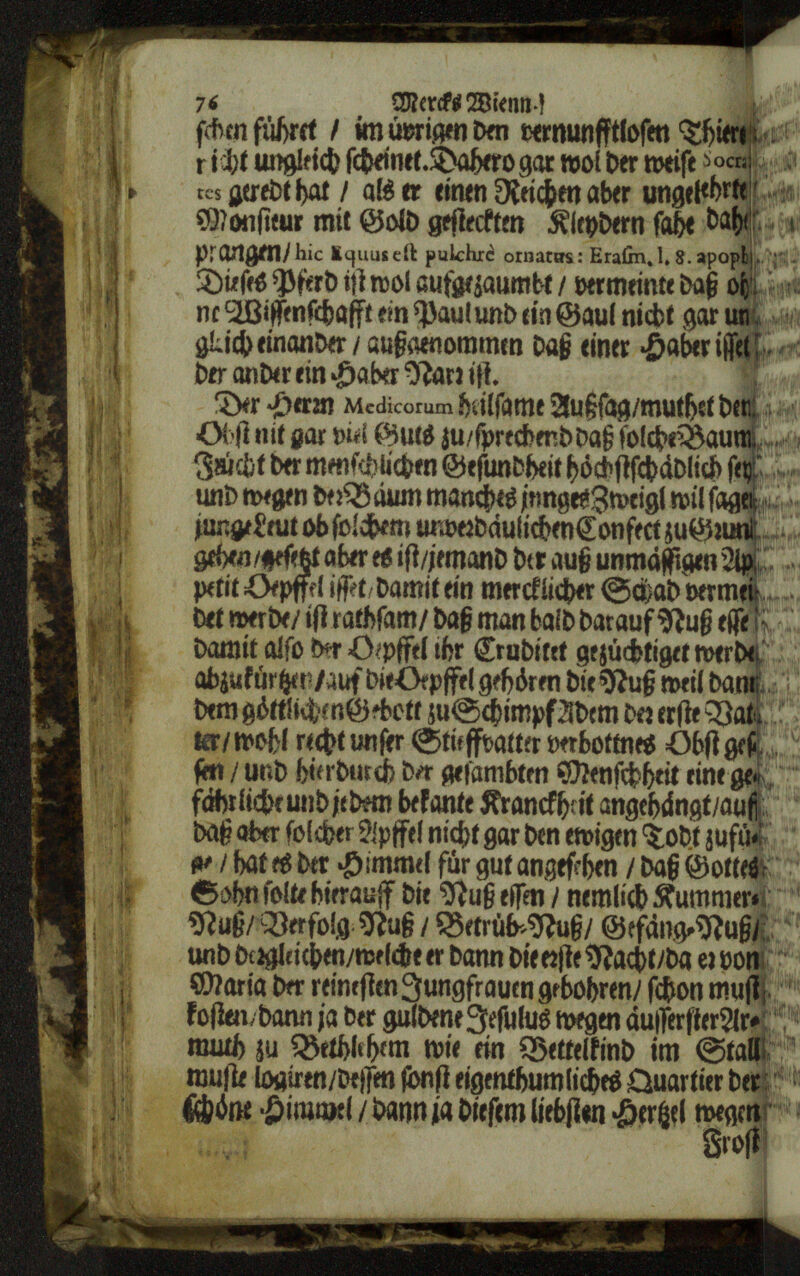 76 Mercks Wienn.
schen führet / im übrigen den vernunfftlosen Thier
richt ungleich scheinet. Dahero gar wol der weise Socra
tes geredt hat / als er einen Reichen aber ungelehrte
Monsieur mit Gold gesteckten Kleydern sahe daher
prangen / hic Equus est pulchrè ornatus: Erasm. l. 8. apoph.
Dises Pferd ist wol aufgezaumbt / vermeinte daß oh
ne Wissenschafft ein Paul und ein Gaul nicht gar un
gleich einander / außgenommen daß einer Haber isset
der ander ein Haber Narr ist.
Der Herrn Medicorum heilsame Außsag / muthet dem
Obst nit gar viel Guts zu / sprechend daß solche Baum
Zücht der menschlichen Gesundheit höchstschädlich sey
und wegen der Bäum manches junges Zweigl wil sagen
junge Leut ob solchem unverdäulichen Confect zu Grund
gehen / gesetzt aber es ist / jemand der auß unmässigen Ap
petit Oepffel isset / damit ein mercklicher Schad vermei
det werde / ist rathsam / daß man bald darauf Nuß esse
damit also der Oepffel ihr Cruditet gezüchtiget werde
abzukürtzen / auf die Oepffel gehören die Nuß weil dann
dem göttlichen Gebott zu Schimpf Adem der erste Vat
ter / wohl recht unser Stieffvatter verbottnes Obst ges
sen / und hierdurch der gesambten Menschheit eine ge
fährliche und jedem bekante Kranckheit angehängt / auß
daß aber solcher Apffel nicht gar den ewigen Todt zufü
ge / hat es der Himmel für gut angesehen / daß Gottes
Sohn solte hierauff die Nuß essen / nemlich Kummer-
Nuß / Verfolg-Nuß / Betrüb-Nuß / Gefäng-Nuß /
und dergleichen / welche er dann die erste Nacht / da er von
Maria der reinesten Jungfrauen gebohren / schon must
kosten / dann ja der guldene Jesulus wegen äusserster Ar-
muth zu Bethlehem wie ein Bettelkind im Stall
muste logiren / dessen sonst eigenthumliches Quartier der
schöne Himmel / dann ja diesem liebsten Hertzel wegen
Frost